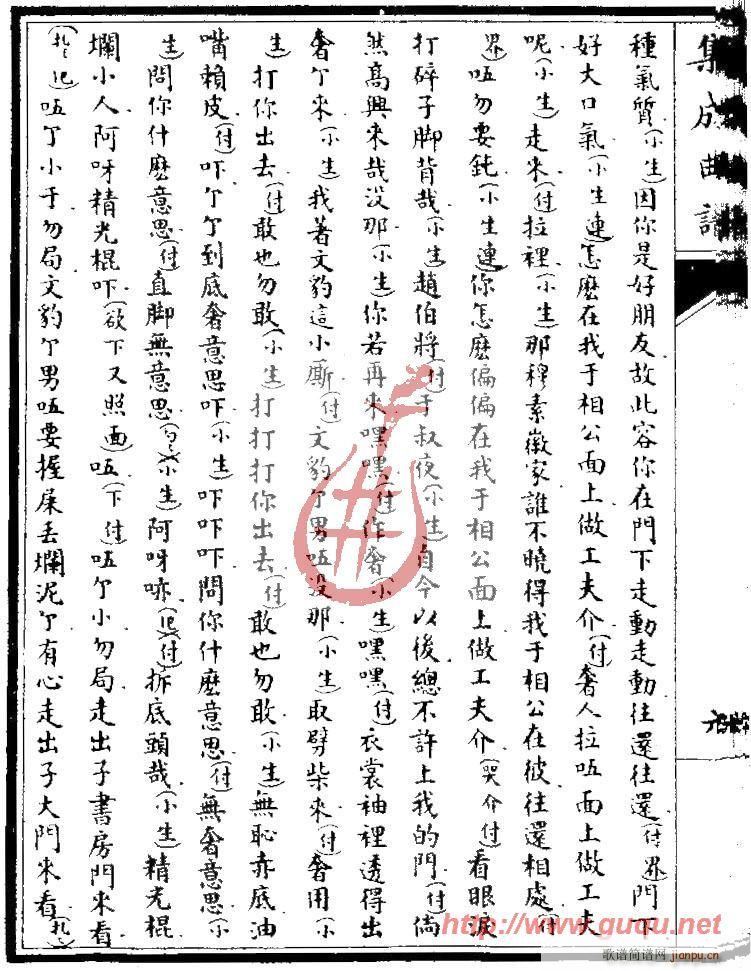 集成曲譜
種氣質(小生)因你是好朋友故此容你在門下走動走動往還往還(付界)門下
好大口氣(小生連)怎麼在我于相公面上做工夫介(付)奢人拉咗面上做工夫
呢(小生)走來(付)拉裡(小生)那穆素徽家誰不曉得我于相公在彼往還相處(付
界)咗勿要鈍(小生連)你怎麼偏偏在我于相公面上做工夫介(哭介付)看眼淚
打碎子脚背哉(小生)趙伯將(付)于叔夜(小生)自今以後總不許上我的門(付)倘
然高興來哉没那(小生)你若再來嘿嘿(付)作奢(小生)嘿嘿(付)衣裳袖裡透得出
奢个來(小生)我著文豹這小廝(付)文豹个男咗没那(小生)取劈柴來(付)奢用(小
生)打你出去(付)敢也勿敢(小生)打打打你出去(付)敢也勿敢(小生)無恥赤底油
嘴賴皮(付)吓个个到底奢意思吓(小生)吓吓吓問你什麼意思(付)無奢意思(小
生)問你什麼意思(付)直脚無意思(小生)阿呀唦(付)拆底頭哉(小生)精光棍
爛小人阿呀精光棍吓(欲下又照面)咗(下付)咗个小勿局走出子書房門來看
咗个小于勿局文豹个男咗要握屎丢爛泥个有心走出子大門來看
http://www.guqu.net
歌谱简谱网 jianpu.cn